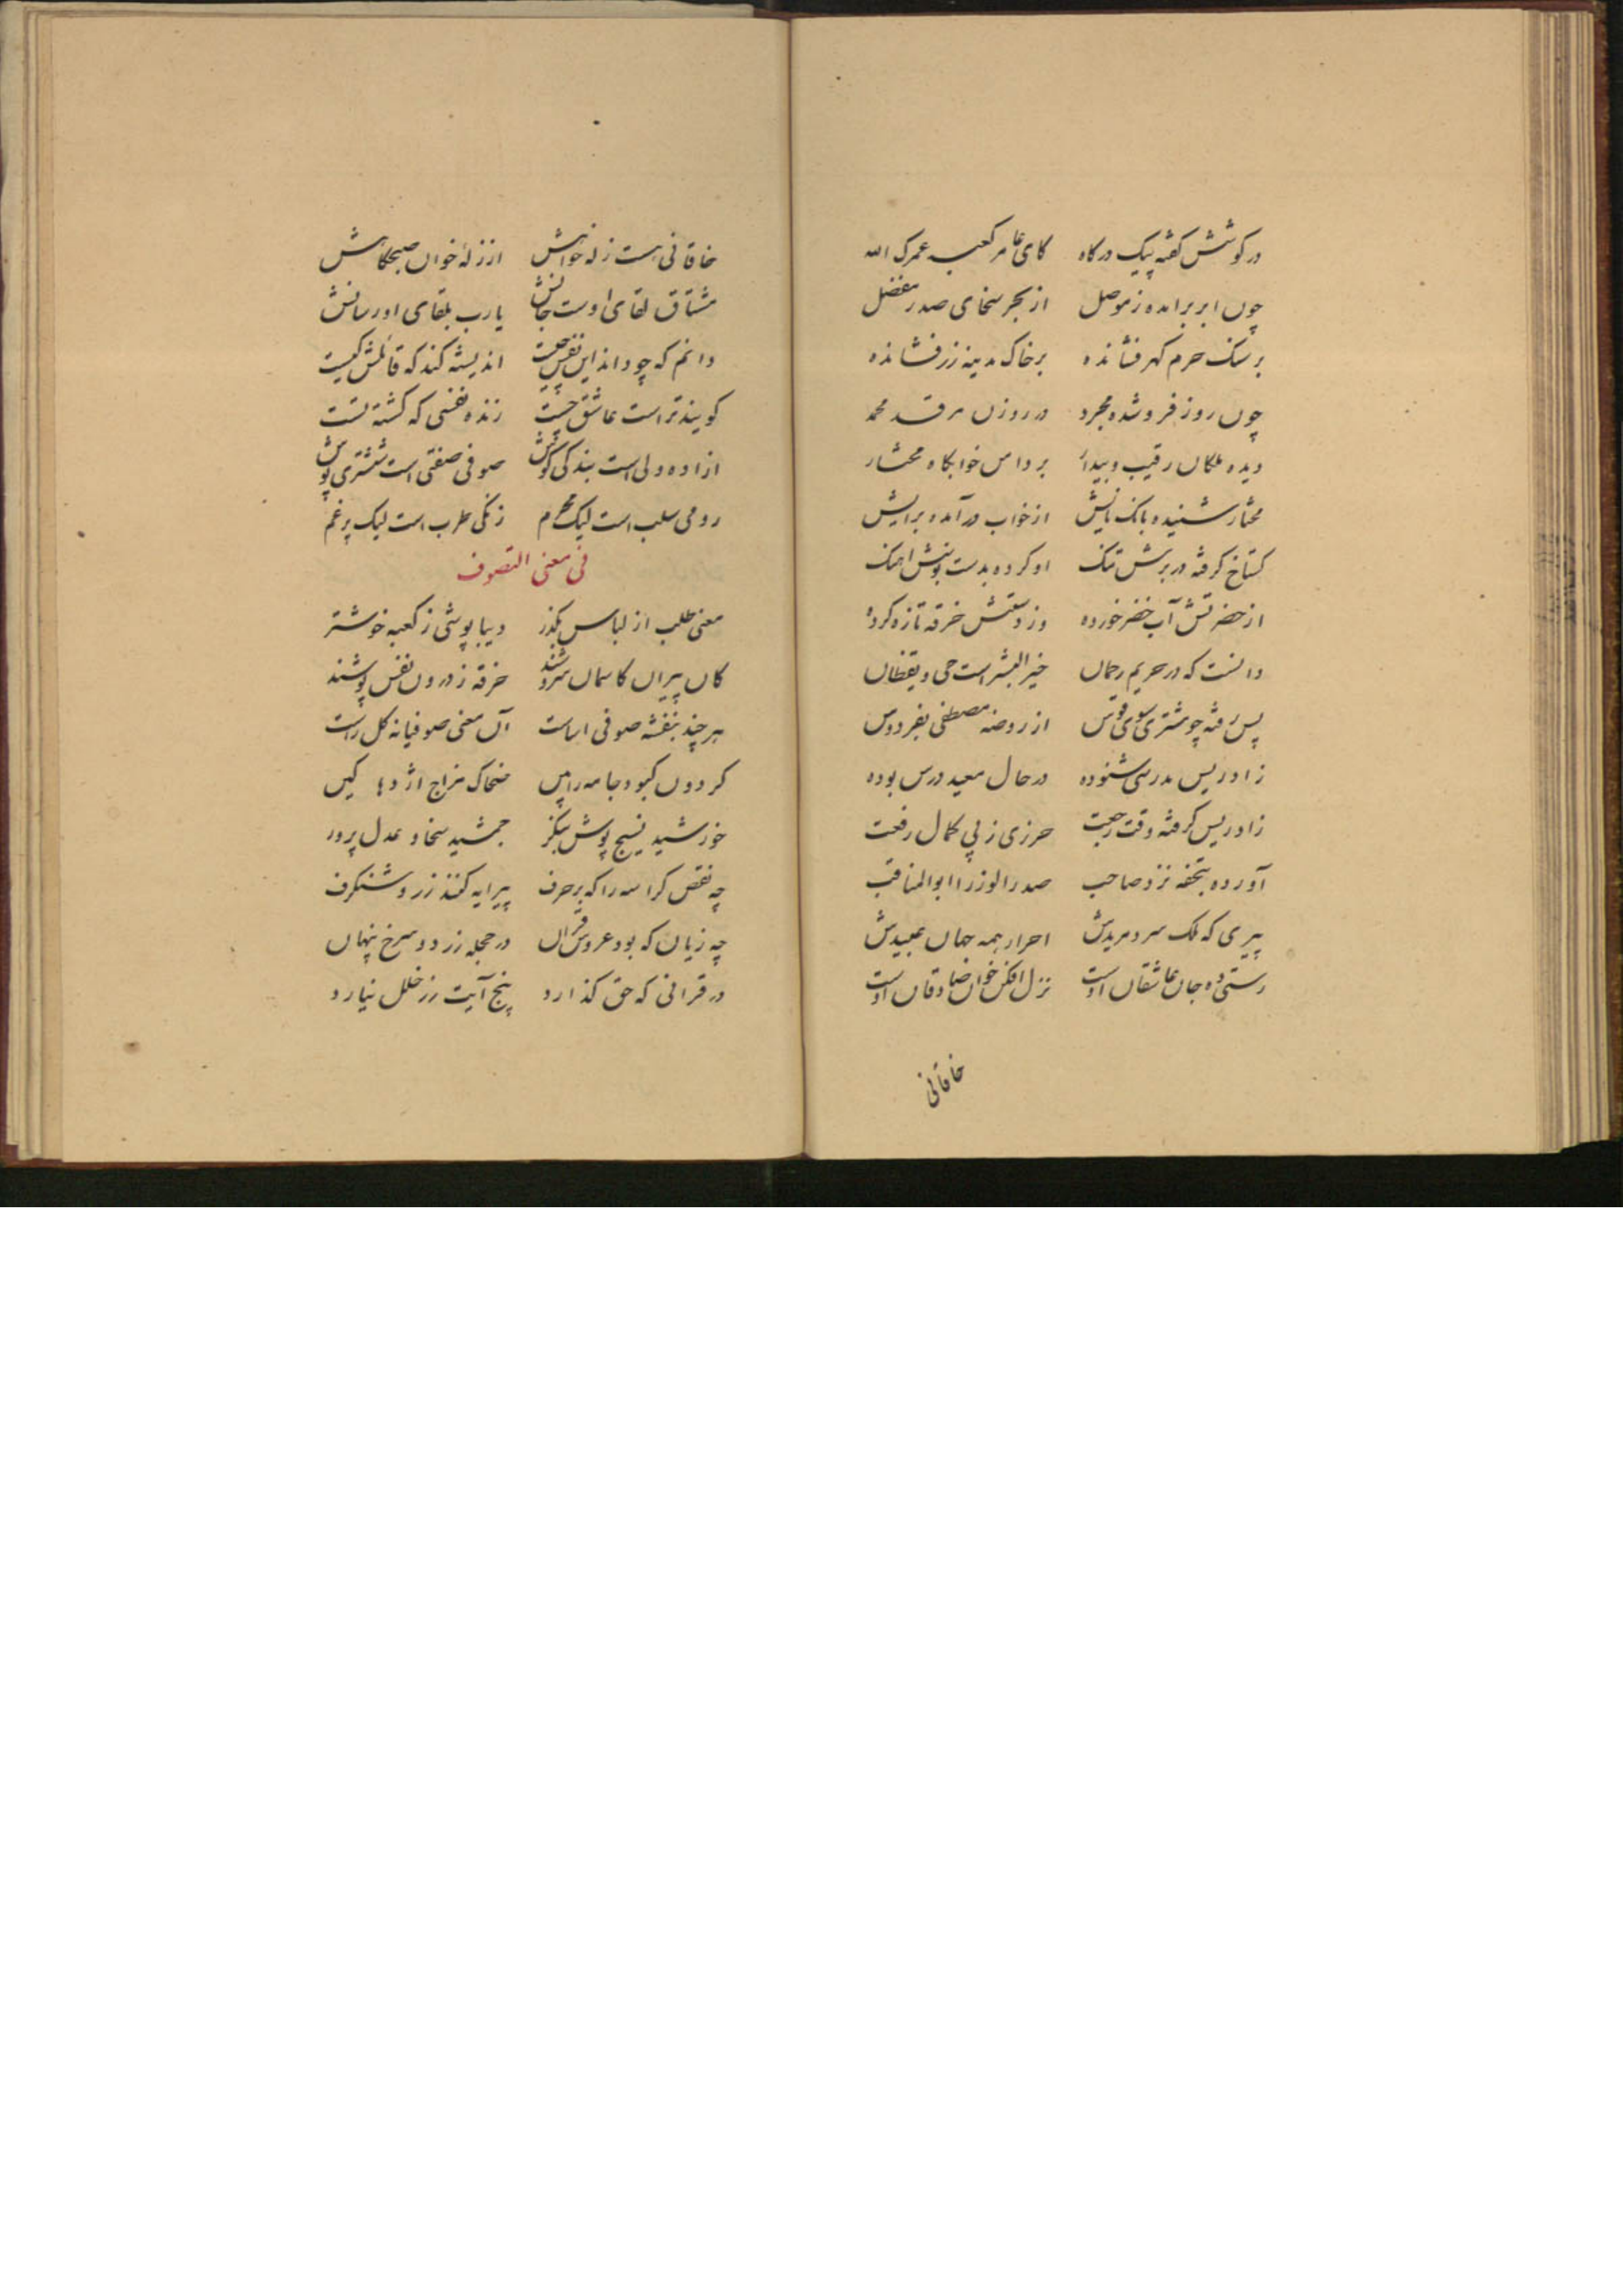 در کوشش کفته پیک درکاه کای عامر کعبه عمرک الله
چون ابر برامده ز موصل از بحر سخای صدر مفضل
بر سنک حرم کهر فشانده بر خاک مدینه زر فشانده
چون روز فرو شده مجرد در روزن مرقد محمد
دیده ملکان رقیب و بیدار بر دامن خوابکاه مختار
مختار شنیده بانک پایش از خواب درآمده برایش
کستاخ کرفته در برش تنک او کرده بدست بوسش اهنک
از حضرتش آب خضر خورده وز دستش خرقه تازه کرده
دانست که در حریم رحمان خیر البشر است حی و یقظان
پس رفته چو مشتری سوی قوس از روضه مصطفی بفردوس
ز ادریس مدرسی شنوده در حال معید درس بوده
ز ادریس کرفته وقت رجعت حرزی ز پی کمال رفعت
آورده بتحفه نزد صاحب صدر الوزرا ابوالمناقب
پیری که ملک سزد مریدش احرار همه جهان عبیدش
رستی ده جان عاشقان اوست نزل افکن خوان صادقان اوست
خاقانی
خاقانی هست زله خوانش از زلهٔ خوان صبحکاهش
مشتاق لقای اوست جانش یارب بلقای او رسانش
دانم که چو داند این نفس چیست اندیشه کند که قائلش کیست
کویند تراست عاشق چست زنده نفسی که کشته تست
ازاده دلی است بندکی کوش صوفی صفتی است ششتری پوش
رومی سلب است لیک محرم زنکی طرب است لیک پرغم
فی معنی التصوف
معنی طلب از لباس بکذر دیبا پوشی ز کعبه خوشتر
کان پیران کاسمان سروشند خرقه ز درون نفس پوشند
هر چند بنفشه صوفی اساست آن معنی صوفیانه کل راست
کردون کبود جامه را بین ضحاک مزاج اژدها کین
خورشید نسیج پوش بنکر جمشید سخا و عدل پرور
چه نقص کراسه را که بر حرف پیرایه کنند زر و شنکرف
چه زیان که بود عروس قرآن در حجله زرد و سرخ پنهان
در قرانی که حق کذارد پنج آیت زر خلل نیارد